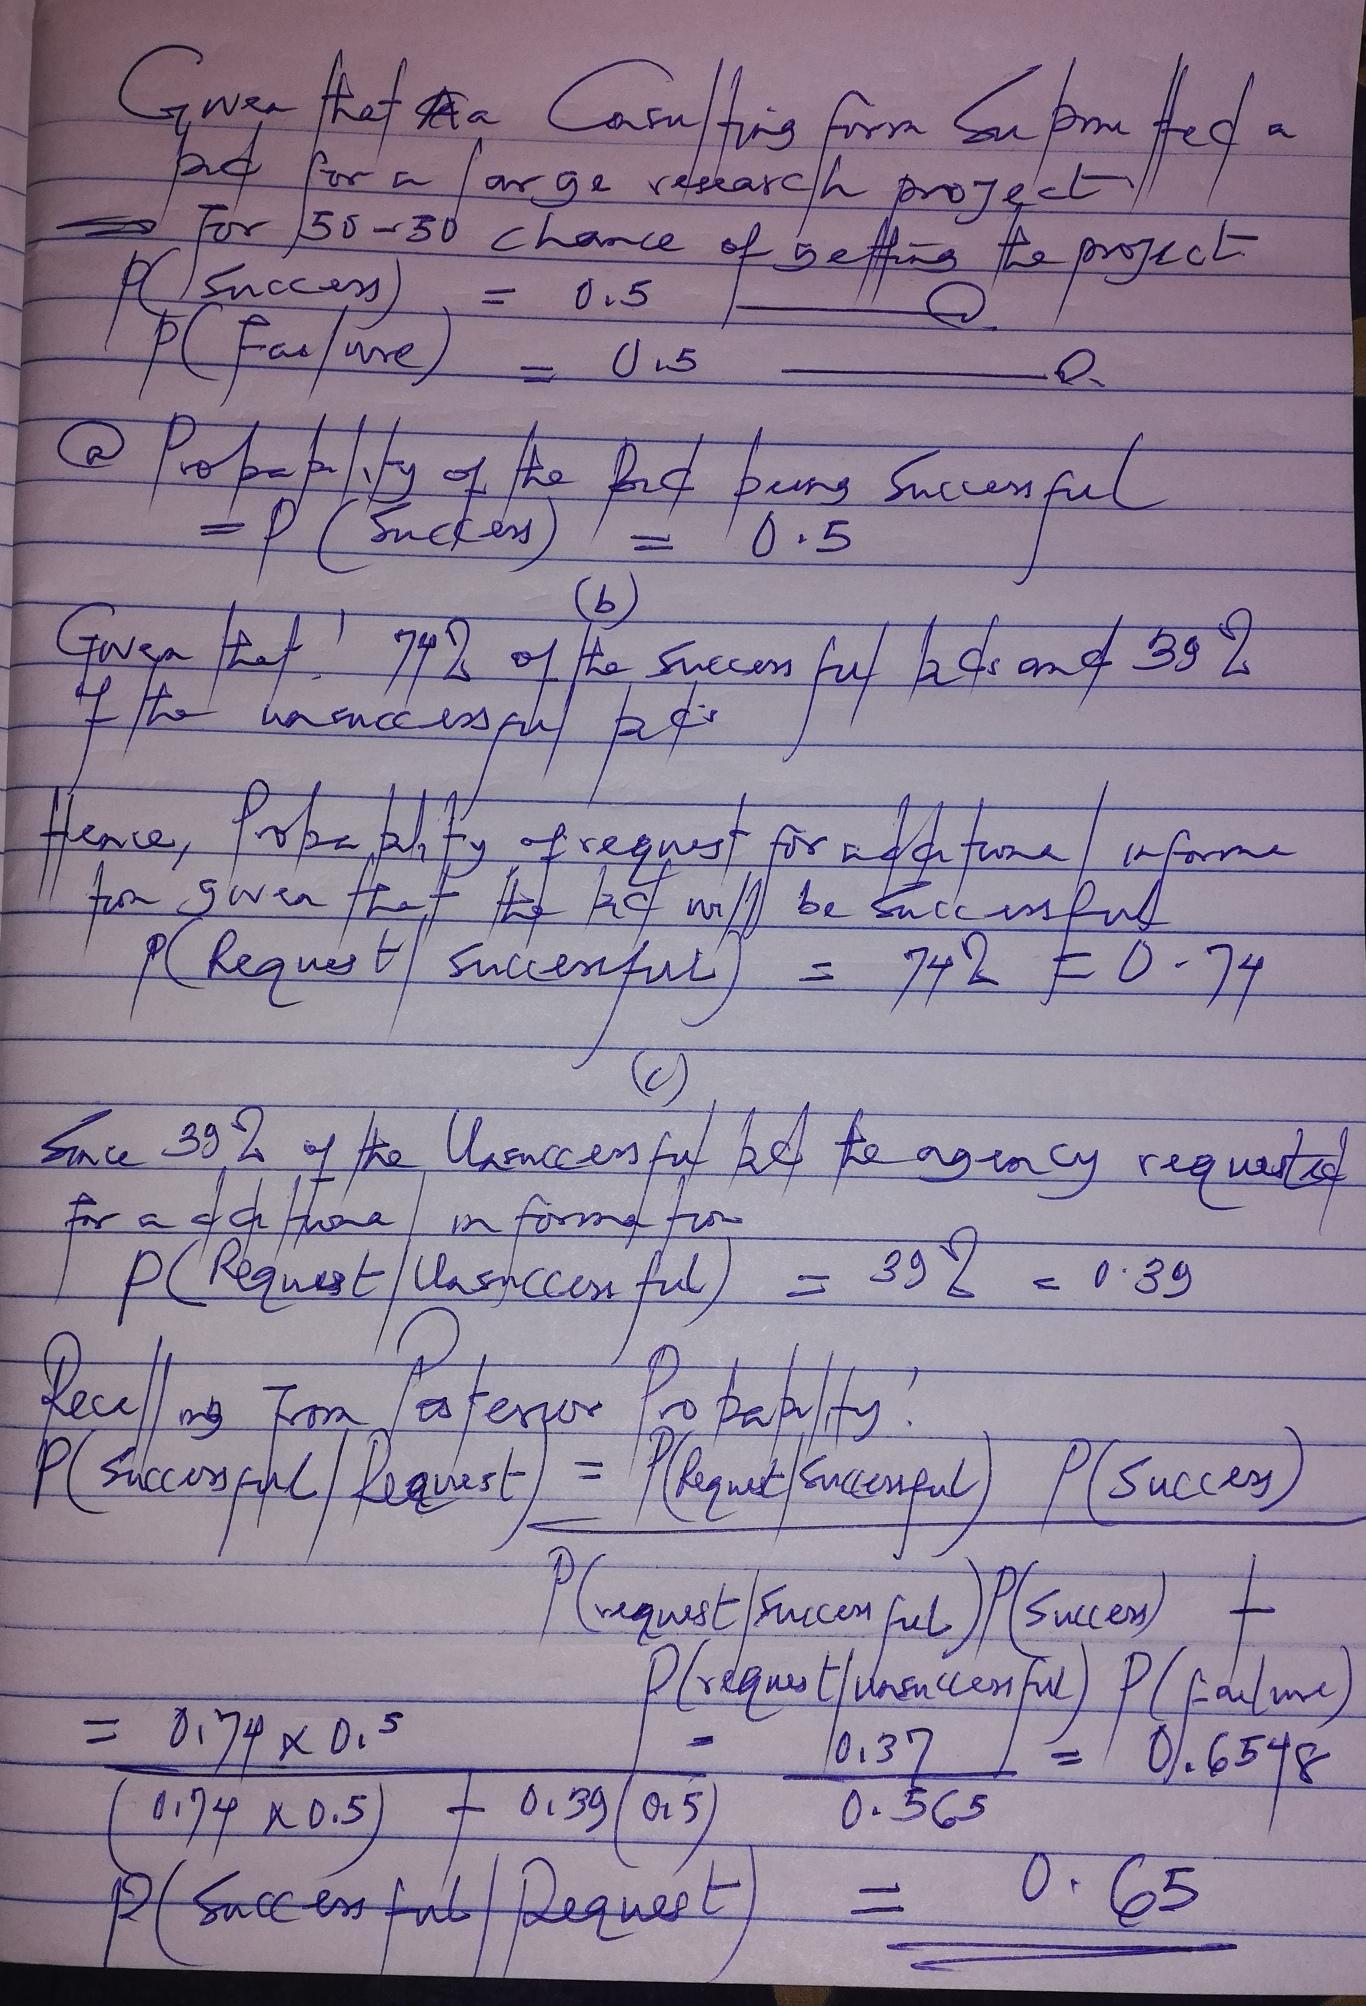 Given that a Consulting firm Submitted a
bid for a large research project
=> For 50-50 chance of getting the project
P(Success) = 0.5
P(Failure) = 0.5
(a) Probability of the Bid being Successful
= P(Success) = 0.5
(b)
Given that! 74% of the Successful bids and 39%
of the unsuccessful bids
Hence, Probability of request for additional informa
tion given that the bid will be Successful
P(Request/Successful) = 74% = 0.74
(c)
Since 39% of the Unsuccessful bid the agency requested
for additional information
P(Request/Unsuccessful) = 39% = 0.39
Recalling From Posterior Probability!
P(Successful/Request) = P(Request/Successful) P(Success)
P(request/Successful)P(Success) +
P(request/unsuccessful) P(Failure)
= 0.74 x 0.5 = 0.37 = 0.6548
(0.74 x 0.5) + 0.39(0.5) 0.565
P(Successful/Request) = 0.65